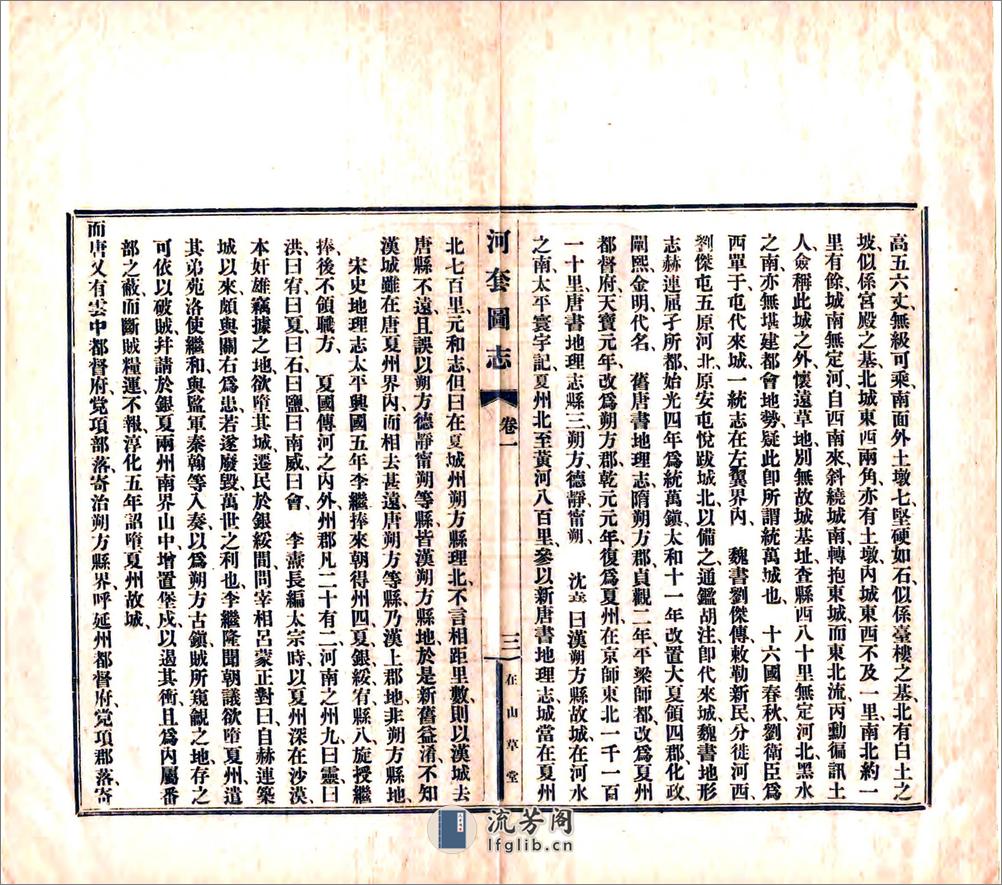 高五六丈、無級可乘、南面外土墩七、堅硬如石、似係臺樓之基、北有白土之
坡、似係宮殿之基、北城東西兩角亦有土墩、內城東西不及一里、南北約一
里有餘、城南無定河、自西南來斜繞城南、轉抱東城而東北流、丙勳徧訊土
人、僉稱此城之外、懷遠草地、別無故城基址、查縣西八十里無定河北、黑水
之南、亦無堪建都會地勢、疑此卽所謂統萬城也、　十六國春秋、劉衛臣爲
西單于、屯代來城、一統志在左翼界內、　魏書劉傑傳、敕勒新民分徙河西、
劉傑屯五原河北、原安屯悅跋城北以備之、通鑑胡注卽代來城、魏書地形
志、赫連屈孑所都、始光四年爲統萬鎮、太和十一年改置大夏、領四郡、化政、
闡熙、金明、代名、　舊唐書地理志、隋朔方郡、貞觀二年平梁師都、改爲夏州
都督府、天寶元年改爲朔方郡、乾元元年復爲夏州、在京師東北一千一百
一十里、唐書地理志、縣三、朔方、德靜、甯朔、　沈垚曰、漢朔方縣故城、在河水
之南、太平寰宇記、夏州北至黃河八百里、參以新唐書地理志、城當在夏州
河套圖志　卷一　三　在山草堂
北七百里、元和志但曰在夏城州朔方縣理北、不言相距里數、則以漢城去
唐縣不遠、且誤以朔方德靜甯朔等縣、皆漢朔方縣地、於是新舊益淆、不知
漢城雖在唐夏州界內、而相去甚遠、唐朔方等縣、乃漢上郡地、非朔方縣地、
宋史地理志、太平興國五年、李繼捧來朝、得州四、夏銀綏宥、有縣八、旋授繼
捧、後不領職方、　夏國傳、河之內外州郡凡二十有二、河南之州九、曰靈、曰
洪、曰宥、曰夏、曰石、曰鹽、曰南威、曰會、　李燾長編、太宗時以夏州深在沙漠、
本奸雄竊據之地、欲墮其城、遷民於銀綏間、問宰相呂蒙正對曰、自赫連築
城以來、頗與關右爲患、若遂廢毀、萬世之利也、李繼隆聞朝議欲墮夏州、遣
其弟苑洛使繼和、與監軍秦翰等入奏、以爲朔方古鎮、賊所窺覦之地、存之
可依以破賊、幷請於銀夏兩州南界山中、增置堡戍、以遏其衝、且爲內屬番
部之蔽、而斷賊糧運、不報、淳化五年詔墮夏州故城、
而唐又有雲中都府、党項部落、寄治朔方縣界、呼延州都督府、党項部落、寄